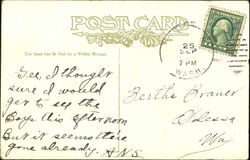 POST CARD
This Space Can Be Used for a Written Message.
25
SEP
7 PM
WASH
Gee, I thought
sure I would
get to see the
Boys this afternoon
But it seems there
gone already. A.N.S.
Bertha Brauer
Odessa
Wn.